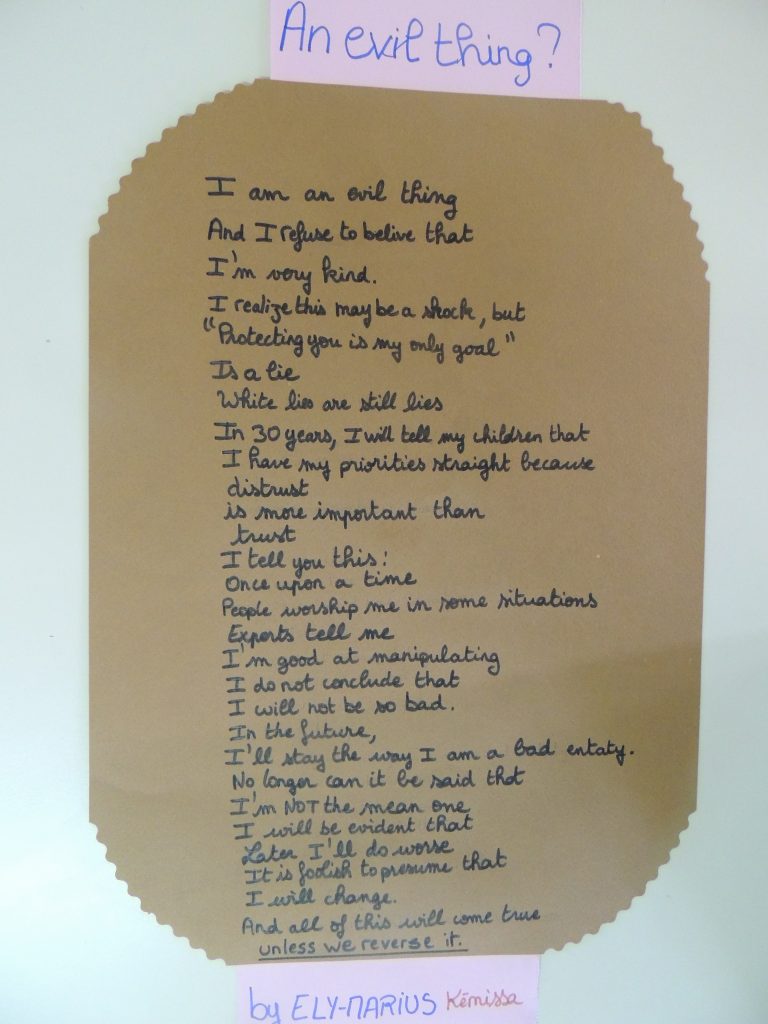 An evil thing?
I am an evil thing
And I refuse to belive that
I'm very kind.
I realize this may be a shock, but
"Protecting you is my only goal"
Is a lie
White lies are still lies
In 30 years, I will tell my children that
I have my priorities straight because
distrust
is more important than
trust
I tell you this:
Once upon a time
People worship me in some situations
Experts tell me
I'm good at manipulating
I do not conclude that
I will not be so bad.
In the future,
I'll stay the way I am a bad entaty.
No longer can it be said that
I'm NOT the mean one
I will be evident that
Later I'll do worse
It is foolish to presume that
I will change.
And all of this will come true
unless we reverse it.
by ELY-MARIUS Kémissa